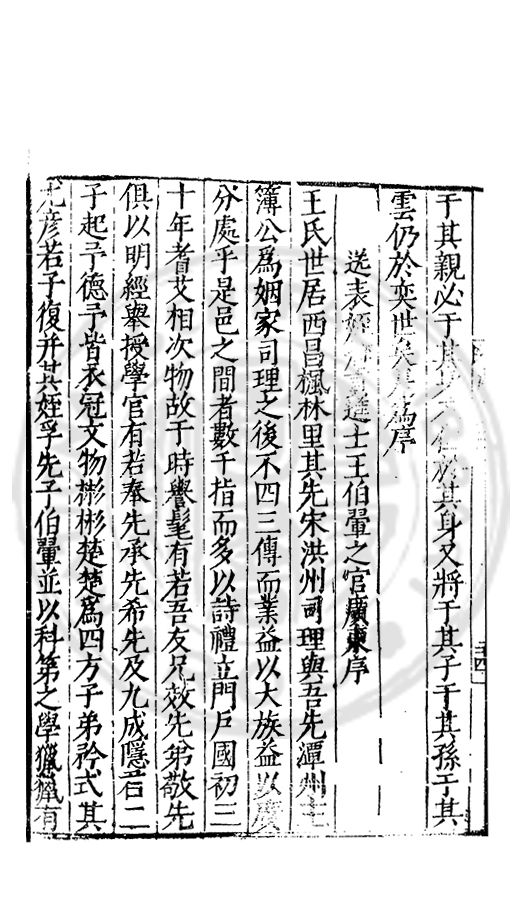 于其親必于其於其身又將于其子于其孫于其
雲仍於奕世矣為序
送表姪進士王伯翬之官廣東序
王氏世居西昌楓林里其先宋洪州司理與吾先潭州主
簿公為姻家司理之後不四三傳而業益以大族益以慶
分處乎是邑之間者數千指而多以詩禮立門戶國初三
十年耆艾相次物故于時譽髦有若吾友兄效先弟敬先
俱以明經舉授學官有若奉先承先希先及九成隱君二
子起予德予皆衣冠文物彬彬楚楚為四方子弟矜式其
尤彥若子復并其姪孚先子伯翬並以科第之學獵獵有